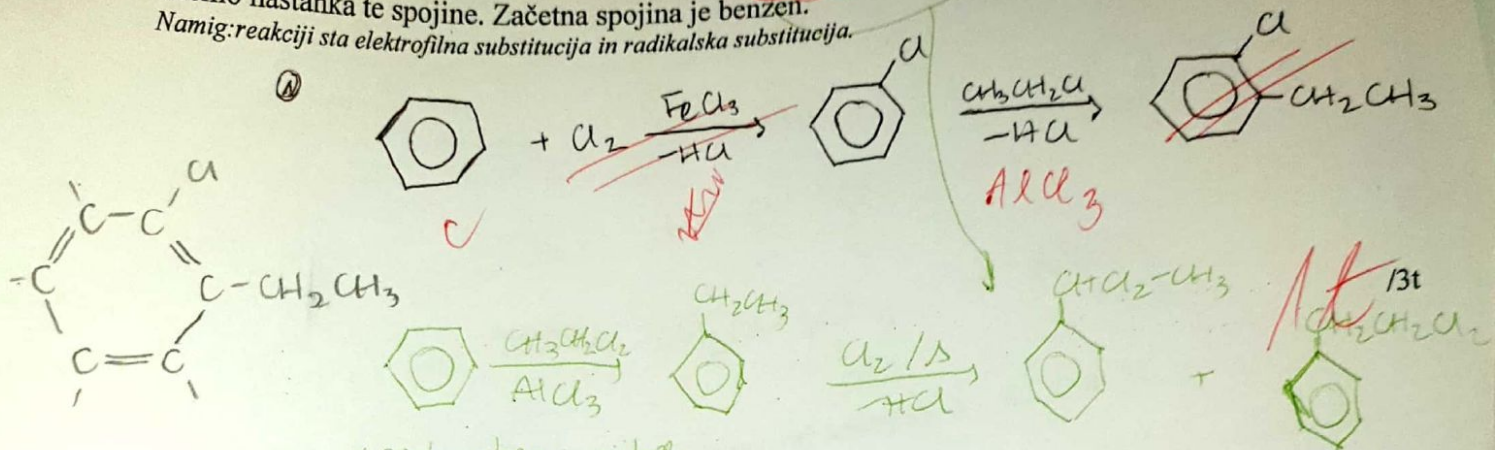 nastanka te spojine. Začetna spojina je benzen.
Namig:reakciji sta elektrofilna substitucija in radikalska substitucija.
Cl Cl
+ Cl2 FeCl3 -HCl CH3CH2Cl -HCl -CH2CH3
AlCl3
Cl
C-C
-C C-CH2CH3
C=C
1t /3t
CH3CH2Cl2 AlCl3 CH2CH3 Cl2/Δ -HCl CHCl2-CH3 + CH2CH2Cl2